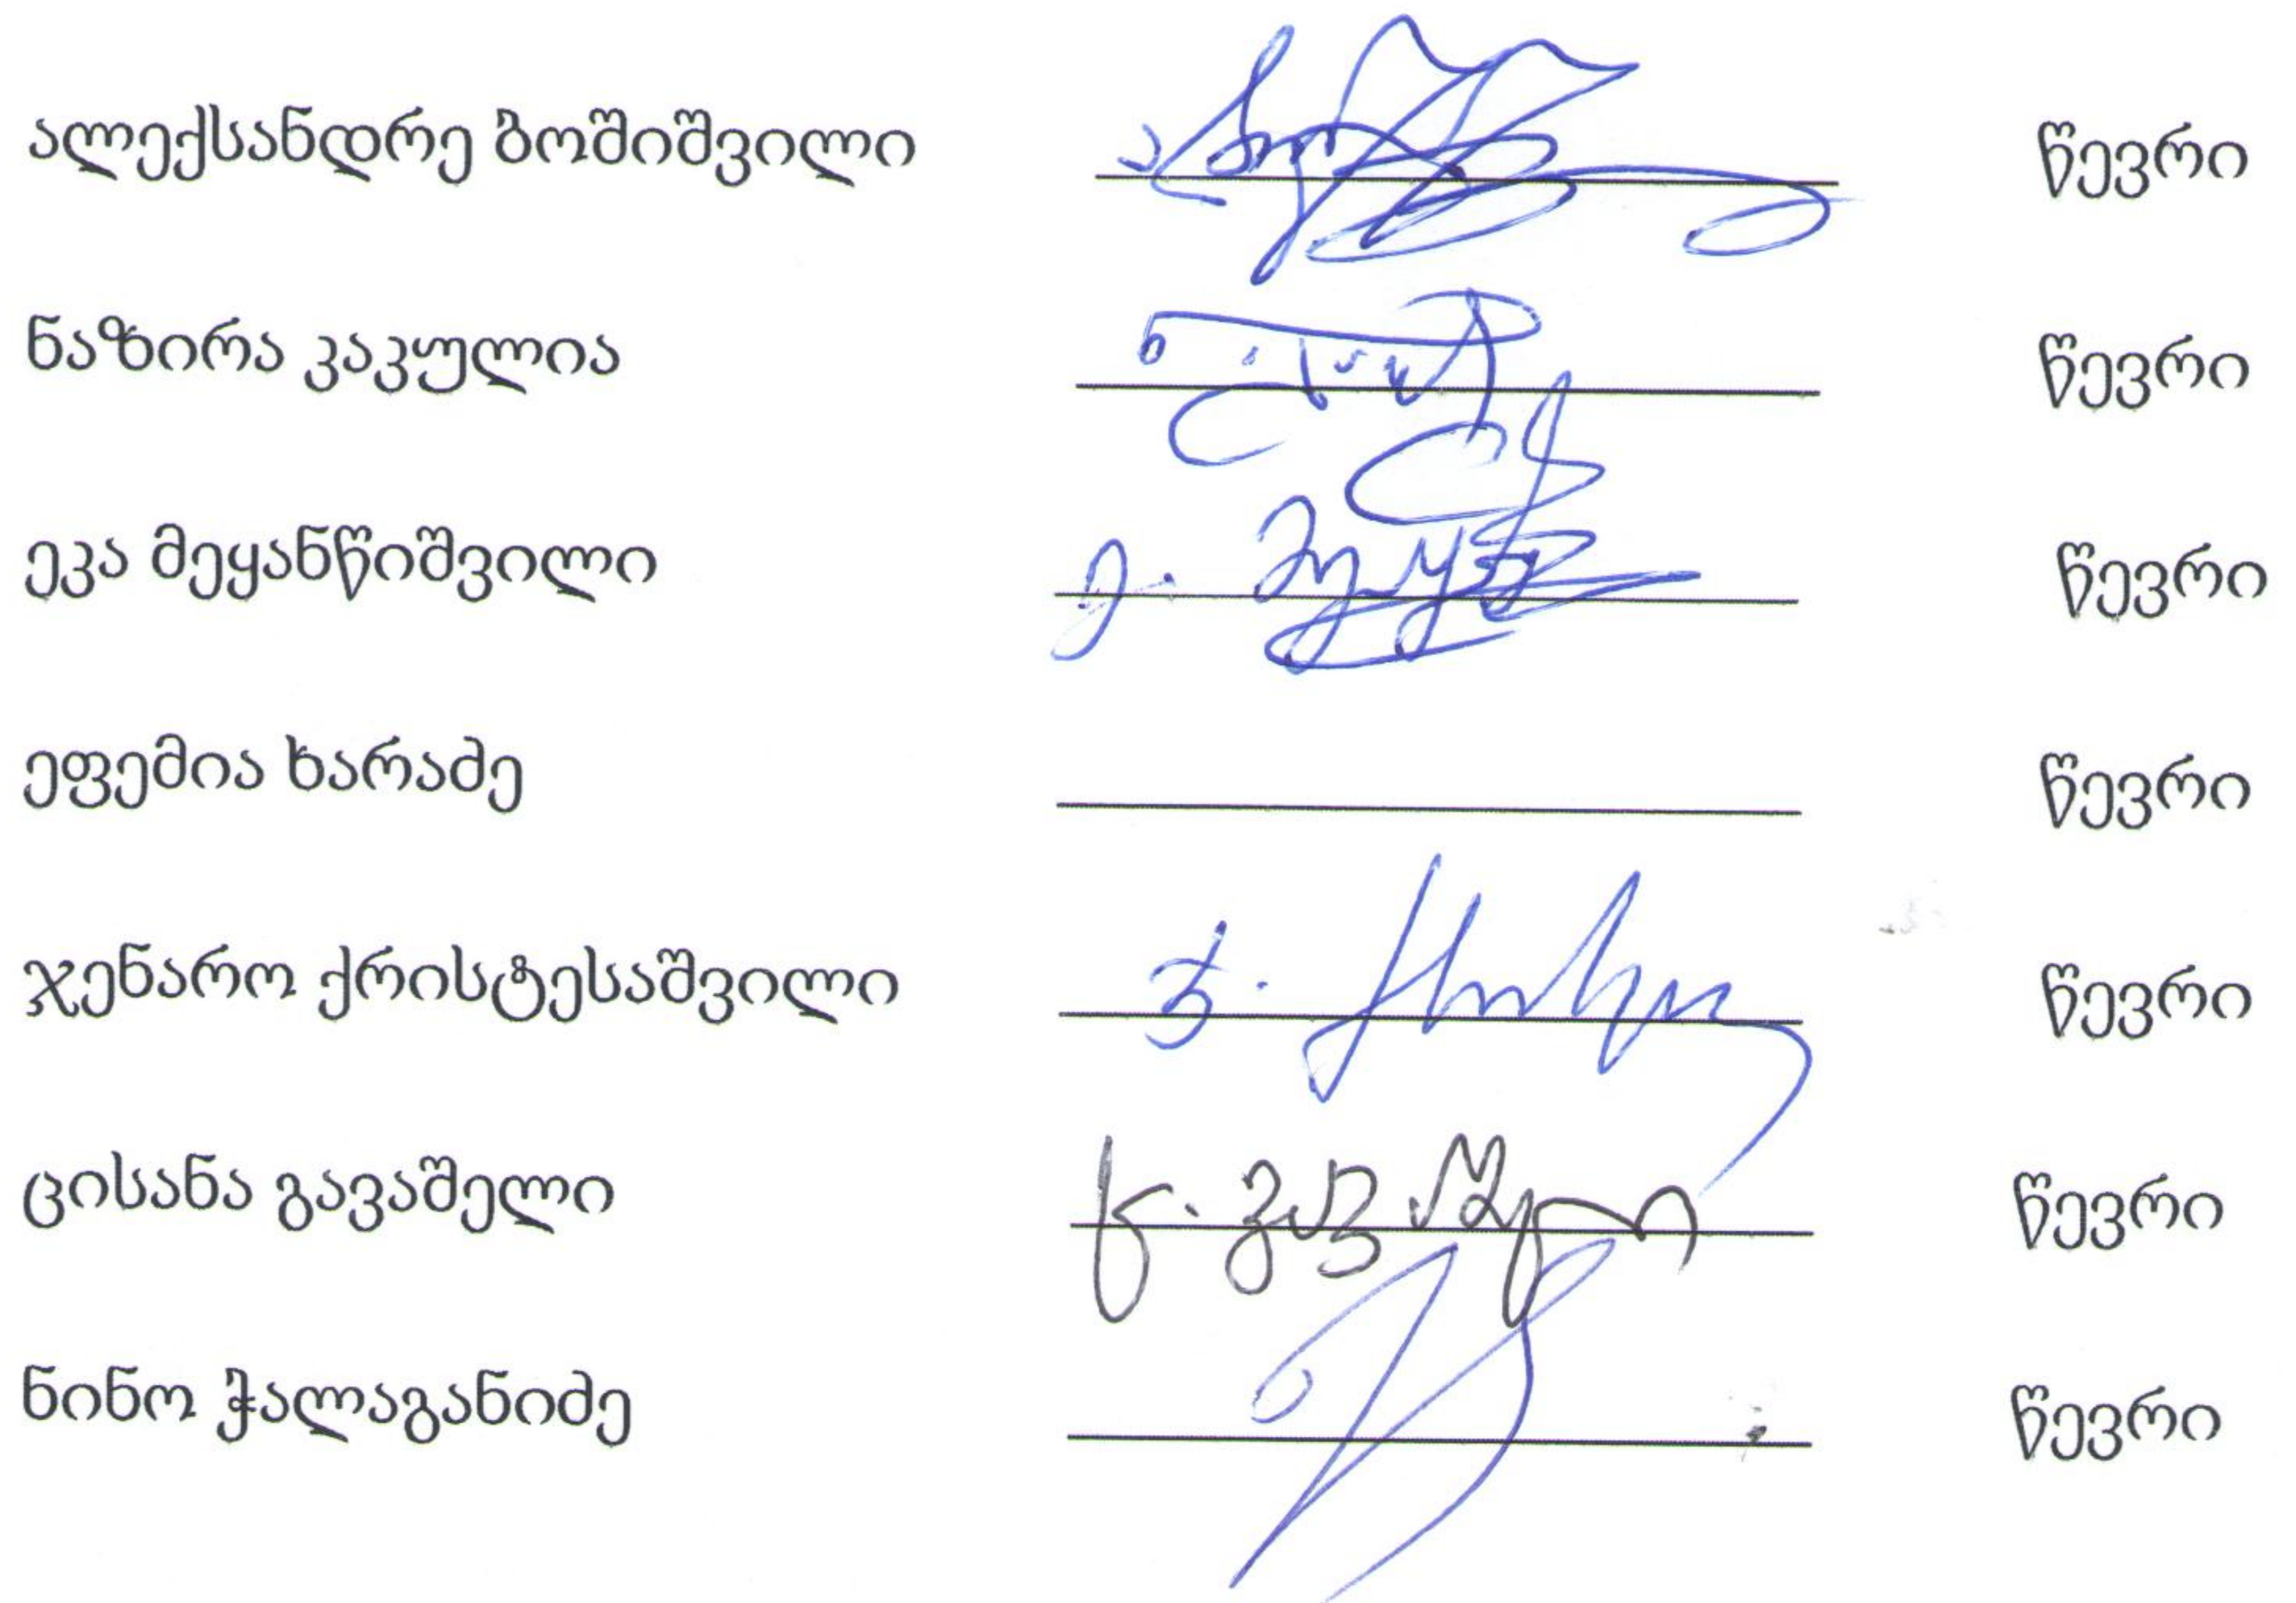 ალექსანდრე ბოშიშვილი წევრი
ნაზირა კაკულია წევრი
ეკა მეყანწიშვილი წევრი
ეფემია ხარაძე წევრი
ჯენარო ქრისტესაშვილი წევრი
ცისანა გავაშელი ც. გავაშელი წევრი
ნინო ჭალაგანიძე წევრი